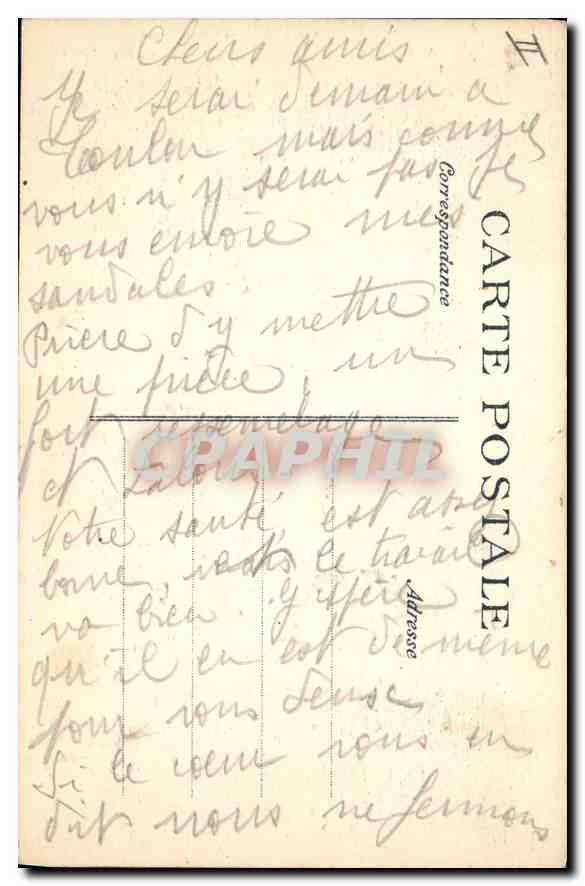 II
Chers amis
Je serai demain à
Toulon mais comme
vous n'y serai pas je
vous envoie mes
sandales.
Prière d'y mettre
une pièce, un
fort ressemelage
et talon
Notre santé est assez
bonne, mais le travail
va bien. J'espère
qu'il en est de même
pour vous deux
Si le cœur vous en
dit nous ne fermons
CARTE POSTALE
Correspondance
Adresse
CPAPHIL